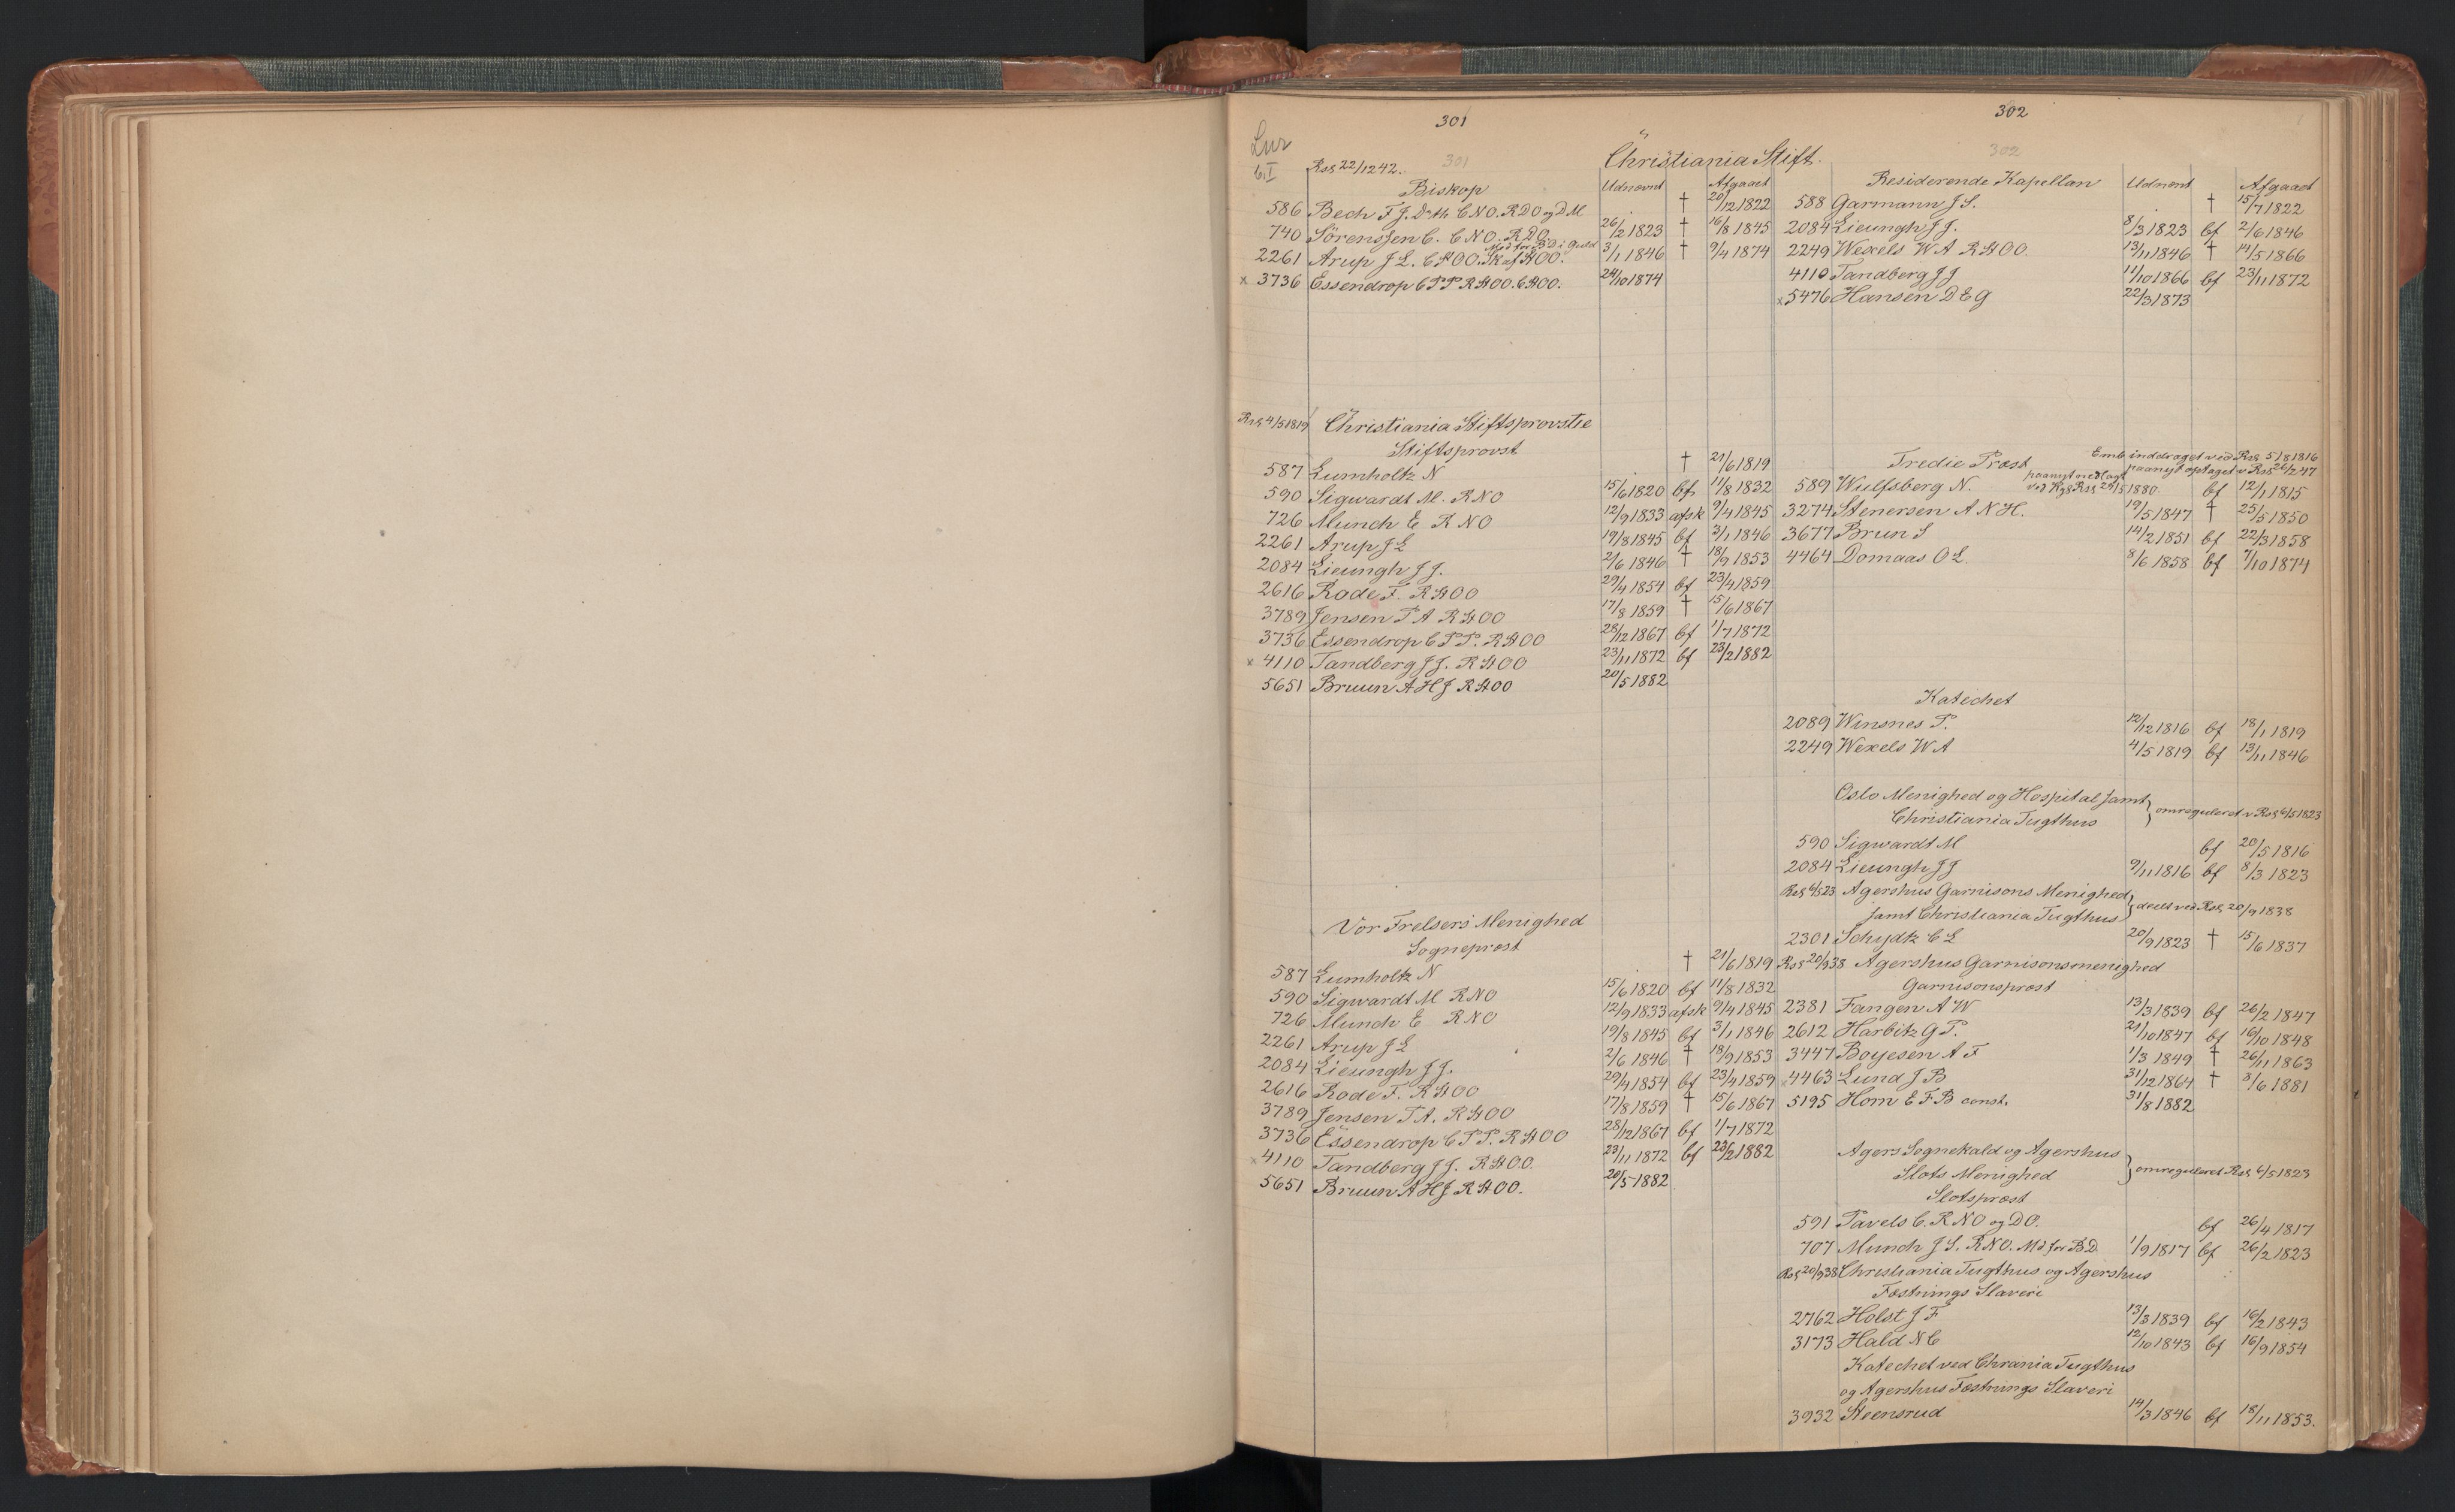 301
302
Christiania Stift.
301
302
Res 22/12 42.
Biskop Udnævnt Afgaaet
586 Bech F J. Drth C N O. R D O og D M † 20/12 1822
740 Sörenssen C. C N O. R D O. 26/2 1823 † 16/8 1845
Md for B D i Guld
2261 Arup J L. C St O O. Sk af St O O. 3/1 1846 † 9/4 1874
x 3736 Essendrop C P P R St O O. C St O O. 24/10 1874
Res 4/5 1819 Christiania Stiftsprovstie
Stiftsprovst
587 Lumholtz N † 21/6 1819
590 Sigwardt M. R N O 15/6 1820 bf 11/8 1832
726 Munch E R N O 12/9 1833 afsk 9/4 1845
2261 Arup J L 19/8 1845 bf 3/1 1846
2084 Lieungh J J. 2/6 1846 † 18/9 1853
2616 Rode F. R St O O 29/4 1854 bf 23/4 1859
3789 Jensen P A R St O O 17/8 1859 † 15/6 1867
3736 Essendrop C P P. R St O O 28/12 1867 bf 1/7 1872
x 4110 Tandberg J J. R St O O 23/11 1872 bf 23/2 1882
5651 Bruun A H J R St O O 20/5 1882
Vor Frelsers Menighed
Sognepræst
587 Lumholtz N † 21/6 1819
590 Sigwardt M R N O 15/6 1820 bf 11/8 1832
726 Munch E R N O 12/9 1833 afsk 9/4 1845
2261 Arup J L 19/8 1845 bf 3/1 1846
2084 Lieungh J J. 2/6 1846 † 18/9 1853
2616 Rode F. R St O O 29/4 1854 bf 23/4 1859
3789 Jensen P A. R St O O 17/8 1859 † 15/6 1867
3736 Essendrop C P P. R St O O 28/12 1867 bf 1/7 1872
x 4110 Tandberg J J. R St O O. 23/11 1872 bf 23/2 1882
5651 Bruun A H J R St O O. 20/5 1882
Residerende Kapellan Udnævnt Afgaaet
588 Garmann J S. † 15/7 1822
2084 Lieungh J J. 8/3 1823 bf 2/6 1846
2249 Wexels W A R St O O. 13/11 1846 † 14/5 1866
4110 Tandberg J J 11/10 1866 bf 23/11 1872
x 5476 Hansen D E G 22/3 1873
Emb inddraget ved Res 5/8 1816
Tredie Præst paanyt optaget v Res 26/2 47
paanyt nedlagt
ved Kgl Res 29/5 1880
589 Wulfsberg N. bf 12/1 1815
3274 Stenersen A N H. 19/5 1847 † 25/5 1850
3677 Brun S 14/2 1851 bf 22/3 1858
4464 Domaas O L. 8/6 1858 bf 7/10 1874
Katechet
2089 Winsnes P. 12/12 1816 bf 18/1 1819
2249 Wexels W A 4/5 1819 bf 13/11 1846
Oslo Menighed og Hospital samt
Christiania Tugthus } omreguleret v Res 6/5 1823
590 Sigwardt M bf 20/5 1816
2084 Lieungh J J 9/11 1816 bf 8/3 1823
Res 6/5 23 Agershus Garnisons Menighed
samt Christiania Tugthus } deelt ved Res 20/9 1838
2301 Schydtz C L 20/9 1823 † 15/6 1837
Res 20/9 38 Agershus Garnisonsmenighed
Garnisonspræst
2381 Fangen A W 13/3 1839 bf 26/2 1847
2612 Harbitz G P. 21/10 1847 bf 16/10 1848
3447 Boyesen A F 1/3 1849 † 26/11 1863
x 4463 Lund J B 31/12 1864 † 8/6 1881
5195 Horn E F B const. 31/8 1882
Agers Sognekald og Agershus
Slots Menighed } omreguleret Res 6/5 1823
Slotspræst
591 Pavels C. R N O og D O. bf 26/4 1817
707 Munch J S. R N O. Md for B D. 1/9 1817 bf 26/2 1823
Res 20/9 38 Christiania Tugthus og Agershus
Fæstnings Slaveri
2762 Holst J F 13/3 1839 bf 16/2 1843
3173 Hald N C 12/10 1843 bf 16/9 1854
Katechet ved Chrania Tugthus
og Agershus Fæstnings Slaveri
3932 Steensrud 14/3 1846 bf 18/11 1853.